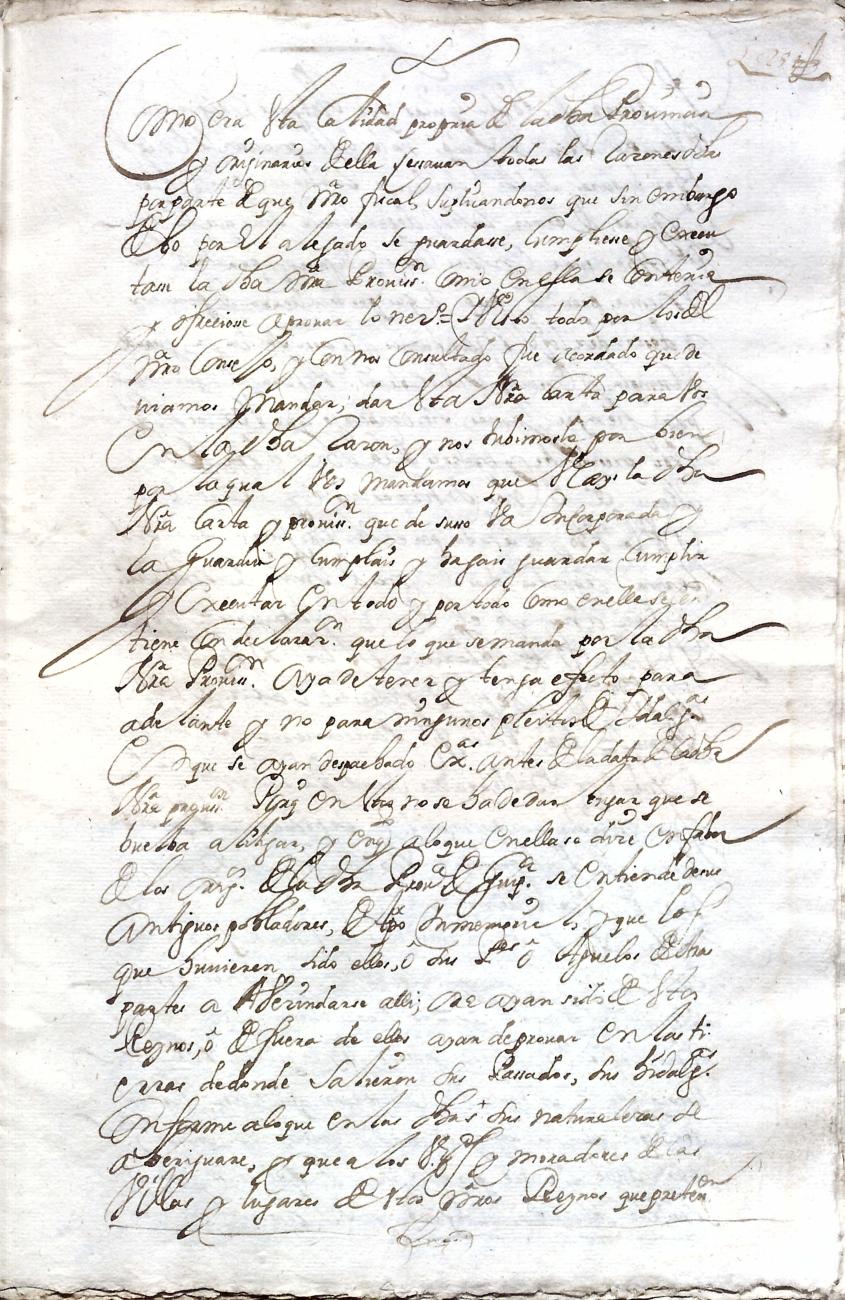 Como era Vta Calidad propria de la dha Prouinçia
y originarios de ella cessauan todas las razones dichas
por parte de que nro fiscal, suplicandonos que sin embargo
de lo por el alegado se guardasse, Cumpliesse y execu
tase la dha nra Prouiss.on como en ella se Contenia
y ofreciose a prouar lo neço = Visto todo por los del
nro Conssejo, y Con nos Consultado fue acordado que de
uiamos Mandar, dar Vta Nra Carta para Vos
En la dha razon, y nos tubimoslo por bien
por la qual Vos mandamos que Veays la dha
Nra Carta y prouiss.on que de susso Va Incorporada y
la Guardeis y Cumplais y hagais guardar Cumplir
y Executar En todo y por todo Como en ella se Con
tiene Con declaraz.on que lo que se manda por la dha
Nra Prouiss.on Aya de tener y tenga efecto para
adelante y no para ningunos pleitos de Hidalg.as
En que se ayan despachado Ex.as antes de la data de la dha
Nra prouiss.on Porq En Vtos no se ha de dar lugar que se
buelba a litigar, y Enq.to a lo que en ella se dize en fabor
de los orig.s de la dha Prou.a de Guip.a se entiende de sus
Antiguos pobladores, de tpo Inmemorial, y que los
que huuieren sido ellos, ô sus P.es ô Aguelos de otras
partes a Aberindarse alli, ora ayan sido de Vtos
Reynos, ô de fuera de ellos ayan de prouar en las ti
erras de donde Salieron sus Passados, sus hidalg.as
Conforme a lo que en las dhas sus naturalezas se
aberiguare, y que a los V.os y moradores de las
Villas y lugares de Vtos nros Reynos que preten